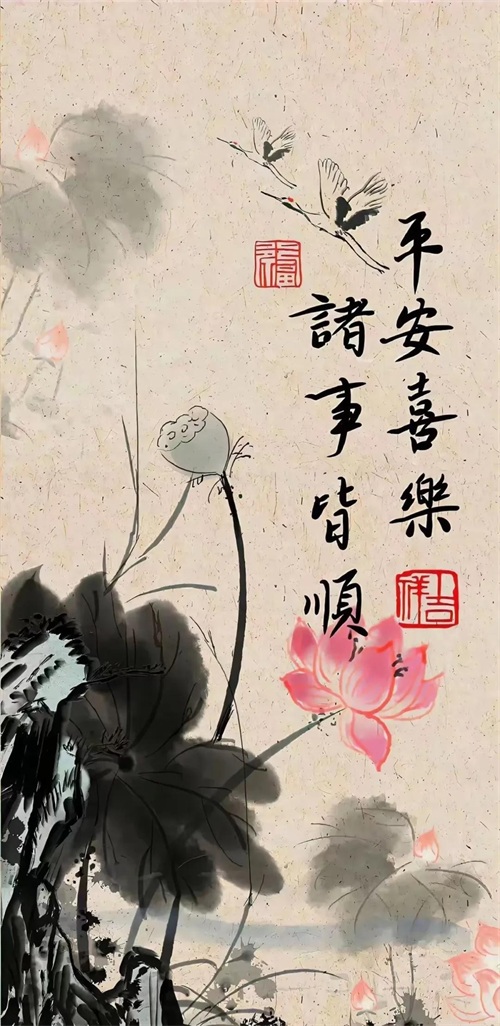 平安喜樂
諸事皆順
福
吉祥